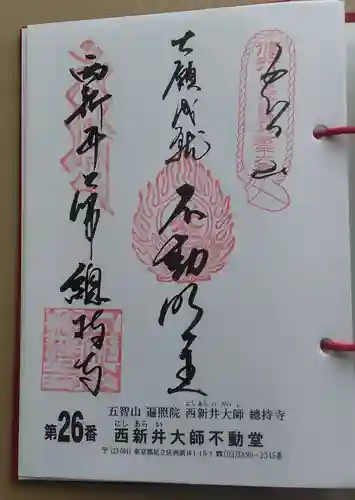 五智山
大願成就
不動明王
西新井大師 總持寺
五智山 遍照院 西新井大師 總持寺
第26番 西新井大師不動堂
東京都足立区西新井1-15-1 ☎(03)3890-2345番